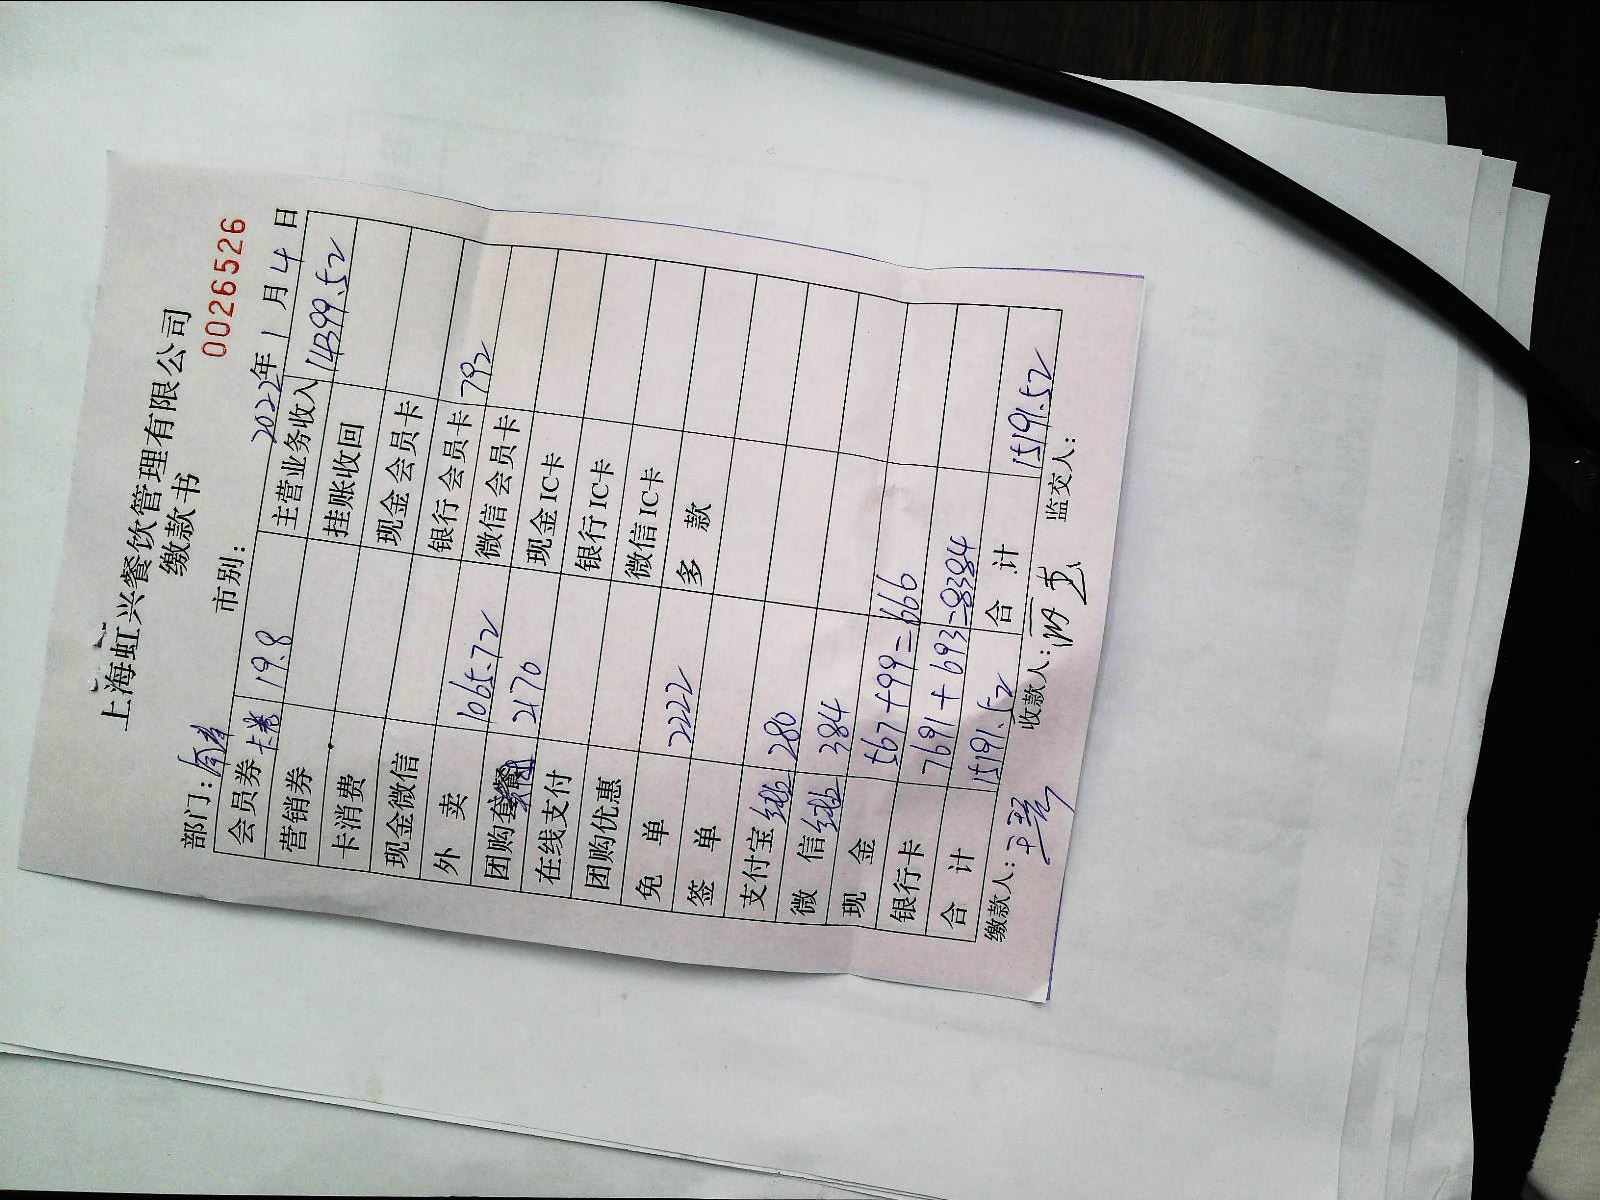 上海虹兴餐饮管理有限公司
缴款书
0026526
部门： 市别： 2022年1月4日
会员券 卡卷 19.8 主营业务收入 14399.52
营销券 挂账收回
卡消费 现金会员卡
现金微信 银行会员卡 792
外卖 1065.72 微信会员卡
团购套餐 2170 现金IC卡
在线支付 银行IC卡
团购优惠 微信IC卡
免单 2222 多款
签单
支付宝 280
微信 384
现金 567+99=666
银行卡 7691+693=8384
合计 15191.52 合计 15191.52
缴款人： 收款人： 监交人：